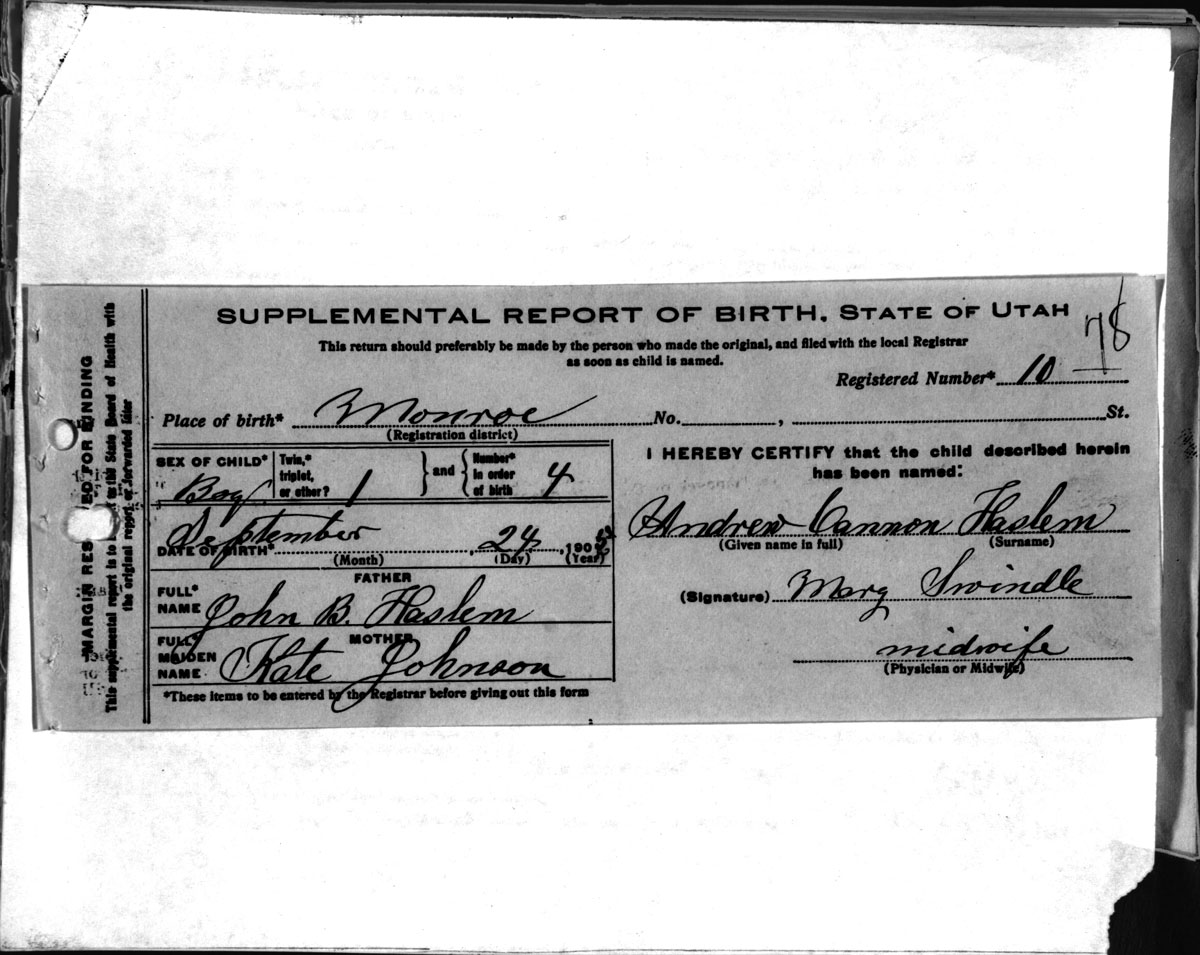 SUPPLEMENTAL REPORT OF BIRTH, STATE OF UTAH
78
This return should preferably be made by the person who made the original, and filed with the local Registrar
as soon as child is named.
Registered Number* 10
Place of birth* Monroe No. , St.
(Registration district)
SEX OF CHILD* Boy
Twin,* triplet, or other? 1
and
Number* in order of birth 4
DATE OF BIRTH* September 24, 190
(Month) (Day) (Year)
FATHER
FULL* NAME John B. Haslem
MOTHER
FULL* MAIDEN NAME Kate Johnson
*These items to be entered by the Registrar before giving out this form
I HEREBY CERTIFY that the child described herein
has been named:
Andrew Cannon Haslem
(Given name in full) (Surname)
(Signature) Mary Swindle
midwife
(Physician or Midwife)
MARGIN RES FOR BINDING
This supplemental report to to the State Board of Health with
the original report or forwarded later